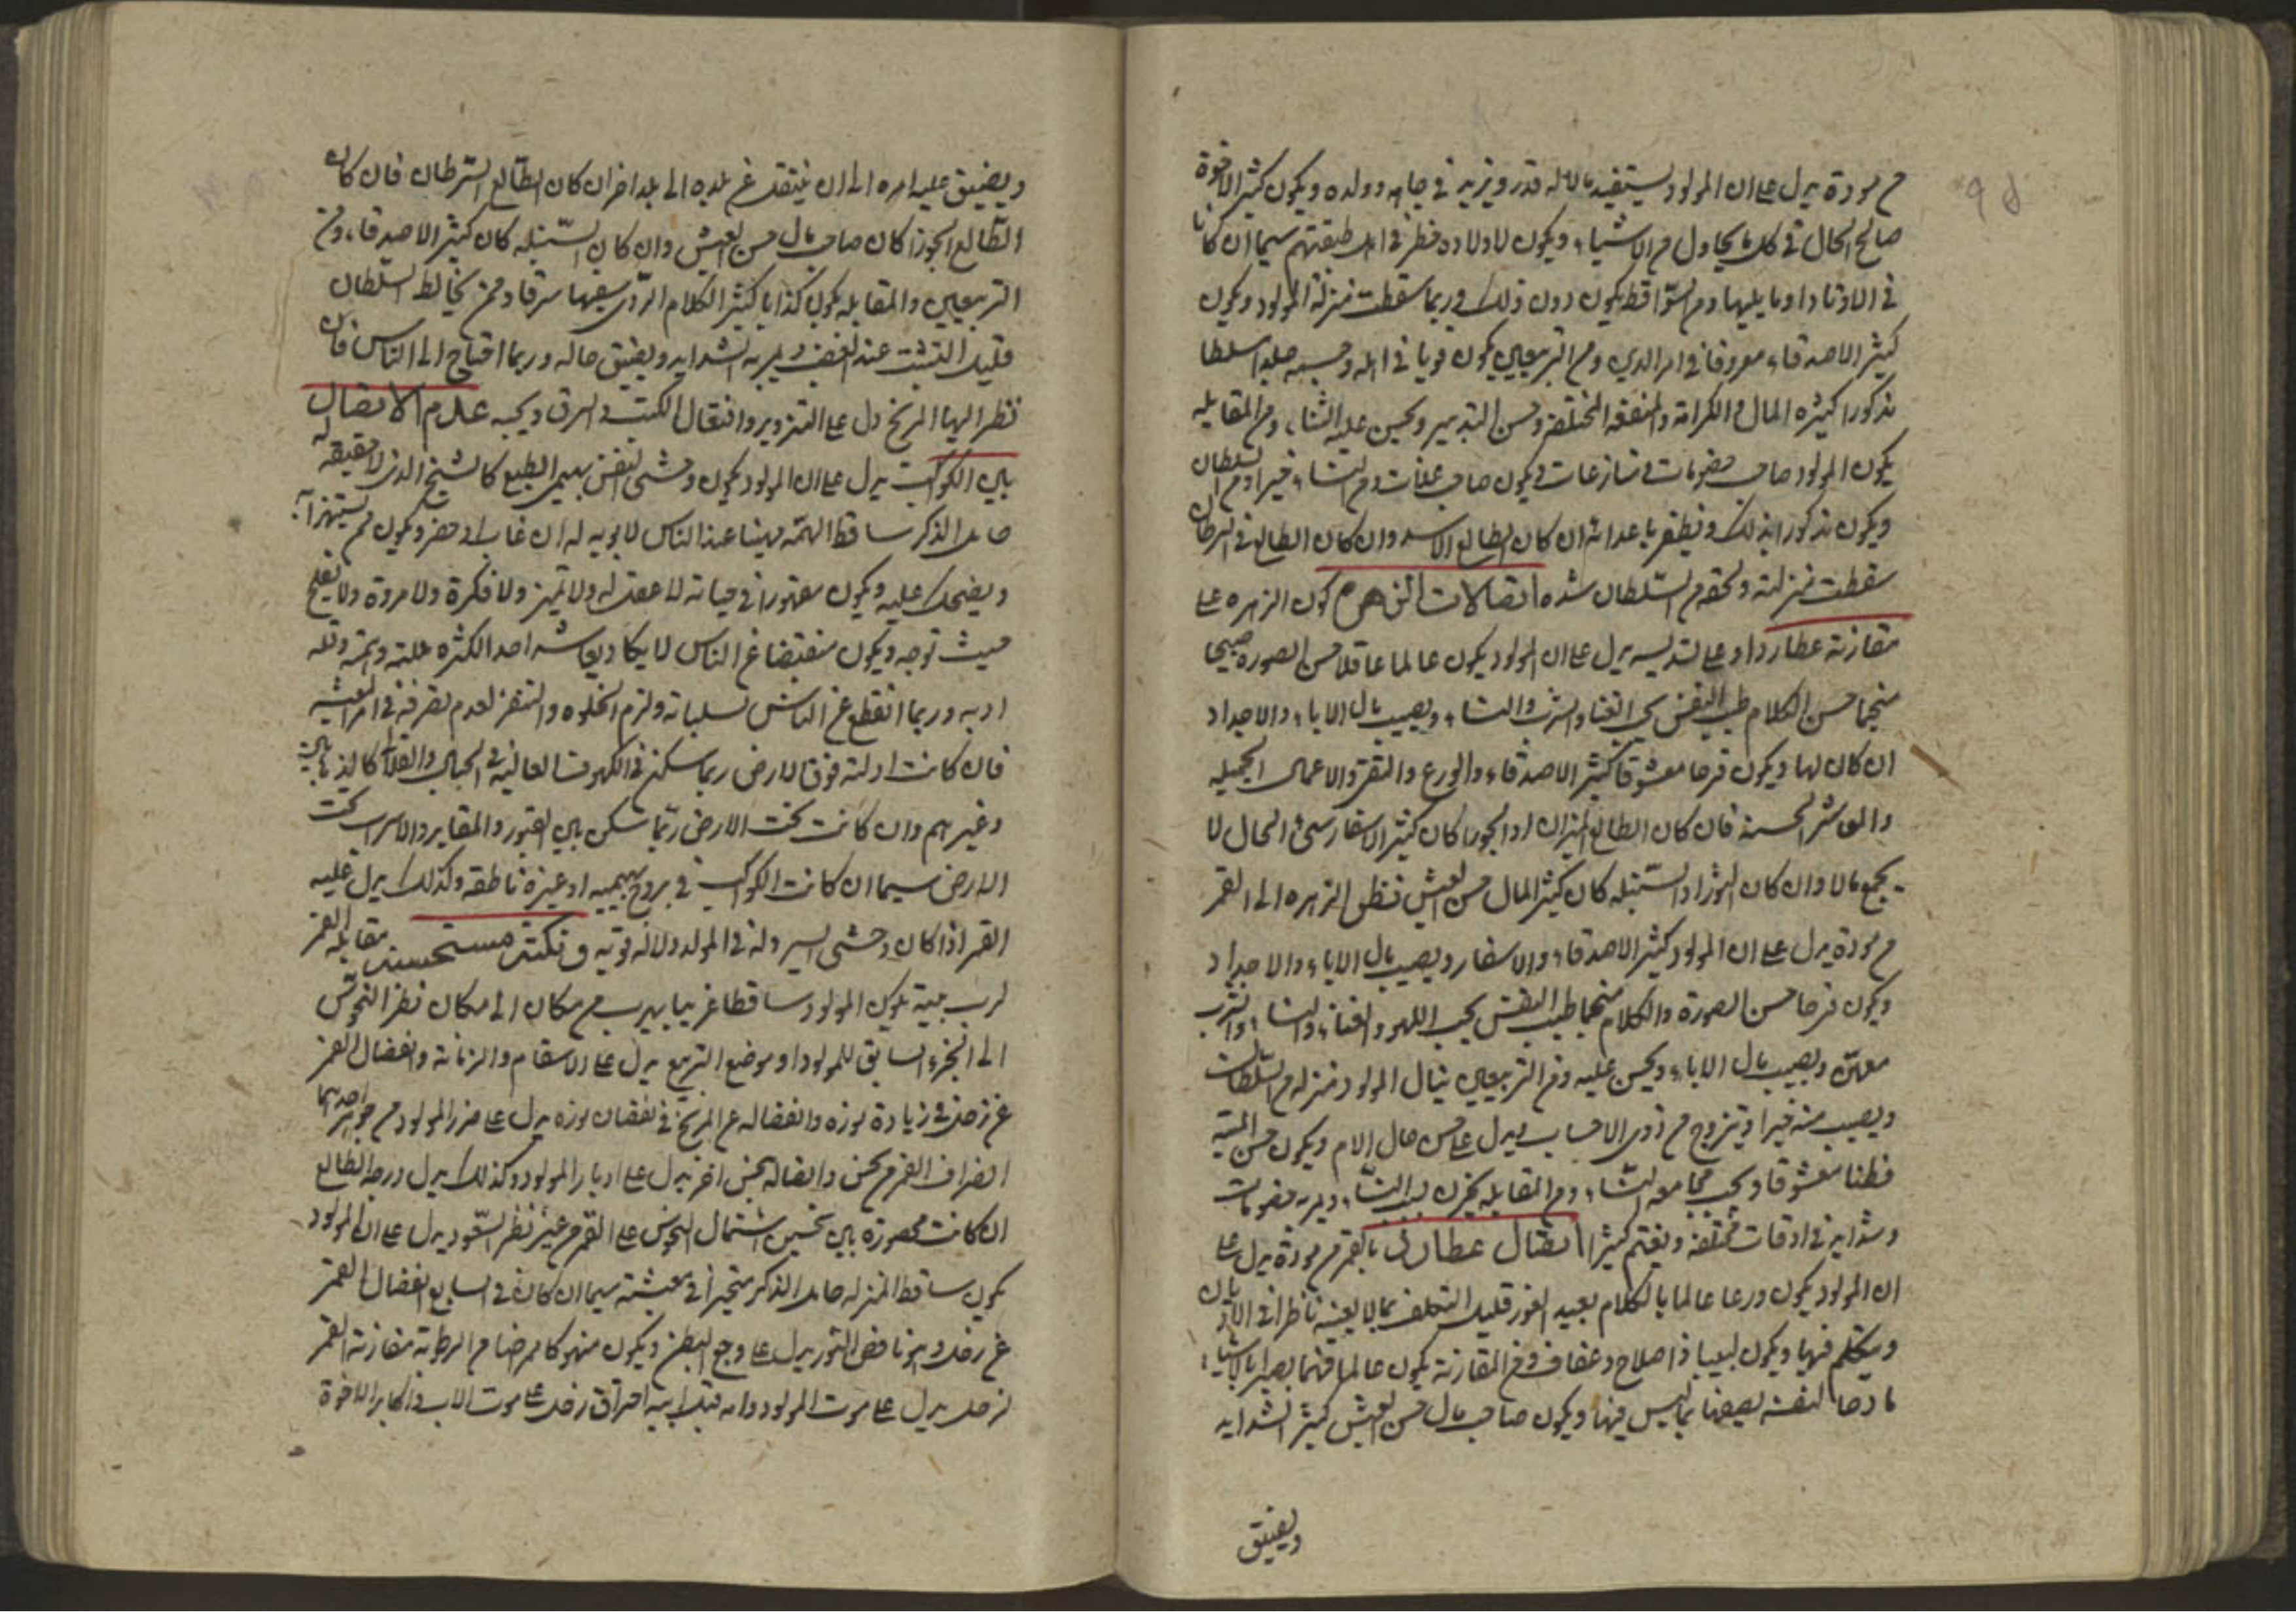 من مودة يدل على ان المولود يستفيد مالا له قدر ويزيد في جاهه وولده ويكون كثير الاخوة
صالح الحال في كل ما يحاول من الاشياء ويكون لاولاده خطر في اهل طبقتهم سيما ان كانا
في الاوتاد او ما يليها ومن السواقط يكون دون ذلك وربما سقطت منزلة المولود ويكون
كثير الاصدقاء معروفا في امر الدين ومن التربيعين يكون قويا في اهله وجسمه جلدا سلطا
مذكورا كثيره المال والكرامة والمنفعة المختلفة وحسن التدبير ويحسن عليه الثناء ومن المقابله
يكون المولود صاحب خصومات ومنازعات ويكون صاحب علات ومن النساء خيرا ومن السلطان
ويكون مذكورا بذلك ويظفر باعدائه ان كان الطالع الاسد وان كان الطالع في السرطان
سقطت منزلته ولحقه من السلطان شده اتصالات الزهرة كون الزهره على
مقارنة عطارد او على تسديسه يدل على ان المولود يكون عالما عاقلا حسن الصوره صبيحا
منجما حسن الكلام طيب النفس يحب الغناء والشرب والنساء ويصيب مال الاباء والاجداد
ان كان لها ويكون فرحا معشوقا كثير الاصدقاء والورع والتقى والاعمال الجميله
والمعاشر الحسنه فان كان الطالع الميزان او الجوزا كان كثير الاسفار سيئ الحال لا
يجمع مالا وان كان الثور او السنبله كان كثير المال حسن العيش نظر الزهره الى القمر
من مودة يدل على ان المولود كثير الاصدقاء والاسفار ويصيب مال الاباء والاجداد
ويكون فرحا حسن الصورة والكلام منجما طيب النفس يحب اللهو والغناء والنساء والشرب
ويصيب مال الاباء ويحسن عليه ومن التربيعين ينال المولود منزله من السلطان
ويصيب منه خيرا ويتزوج من ذوى الاحساب ويدل على حسن حال الام ويكون حسن الهيئة
فطنا معشوقا ويحب مجامعه النساء ومن المقابله يحزن بسبب النساء ويمر به خصومات
وشدايد في اوقات مختلفه ويغتم كثيرا اتصال عطارد بالقمر من مودة يدل على
ان المولود يكون ورعا عالما بالكلام بعيد الغور قليل التكلف بما لا يعنيه ناظرا في الاديان
ويتكلم فيها ويكون لبيبا ذا صلاح وعفاف ومن المقارنة يكون عالما فهما بصيرا بالاشياء
مادحا لنفسه يصفها بما ليس فيها ويكون صاحب مال حسن العيش كثير الشدايد
ويضيق
ويضيق عليه امره الى ان ينتقل عن بلده الى بلد اخر ان كان الطالع السرطان فان كان
الطالع الجوزا كان صاحب مال حسن العيش وان كان السنبله كان كثير الاصدقاء ومن
التربيعين والمقابله يكون كذابا كثير الكلام الردى سفيها سرقا وممن يخالط السلطان
قليل التثبت عند الغضب ويمر به الشدايد ويضيق حاله وربما احتاج الى الناس فان
نظر اليها المريخ دل على التزوير وافتعال الكتب والسرق ويحبه عدم الاتصال
بين الكواكب يدل على ان المولود يكون وحشى النفس بهيمى الطبع كالشبح الذى لا حقيقه له
خامل الذكر ساقط الهمة مهينا عند الناس لا يوبه له ان غاب او حضر ويكون ممن يستهزأ به
ويضحك عليه ويكون مقهورا في حياته لا عقل له ولا تميز ولا فكرة ولا مروة ولا يفلح
حيث توجه ويكون منقبضا عن الناس لا يكاد يعاشر احد الكثره علته وتيهه وقله
ادبه وربما انقطع عن الناس لسلياته ولزم الخلوه والتقز لعدم تصرفه في امر المعيشه
فان كانت ادلته فوق الارض ربما سكن في الكهوف العاليه في الجبال والقلاع
وغيرهم وان كانت تحت الارض ربما سكن بين القبور والمقابر والاسراب تحت
الارض سيما ان كانت الكواكب في بروج بهيميه او غير ناطقه وكذلك يدل عليه
القمر اذا كان وحشى السير وله في المولد دلاله قويه ف نكتة مستحسنة مقابله القمر
لرب بيته يكون المولود ساقطا غريبا يهرب من مكان الى مكان نظر النحوس
الى الجزء السابق للمولود او موضع التربيع يدل على الاسقام والزمانة وانفصال القمر
عن زحل في زيادة نوره وانفصاله عن المريخ في نقصان نوره يدل على ضرر المولود من جوهر احدهما
انصراف القمر من نحس واتصاله بنحس اخر يدل على ادبار المولود وكذلك يدل درجه الطالع
ان كانت محصورة بين نحسين اشتمال النحوس على القمر من غير نظر السعود يدل على ان المولود
يكون ساقط المنزله خامل الذكر متحيرا في معيشته سيما ان كان في السابع انفصال القمر
عن زحل وهو ناقص النور يدل على وجع البطن ويكون منهوكا ممراضا من الرطوبة مقارنة القمر
لزحل يدل على موت المولود وامه قبل ابيه احتراق زحل على موت الاب واكابر الاخوة